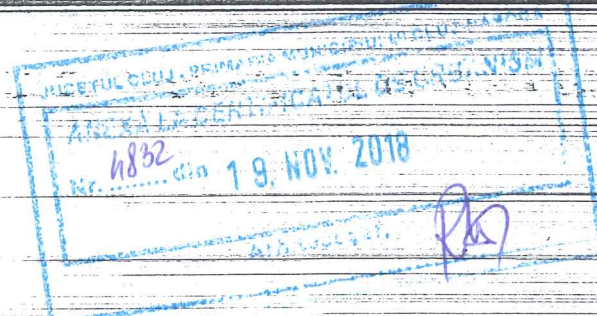 JUDEŢUL CLUJ - PRIMĂRIA MUNICIPIULUI CLUJ-NAPOCA
ANEXĂ LA CERTIFICATUL DE URBANISM
Nr. 4832 din 19. NOV. 2018